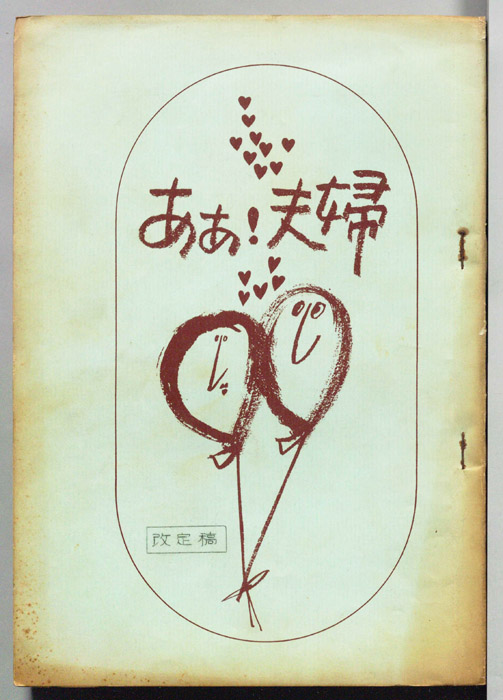 ああ!夫婦
改定稿